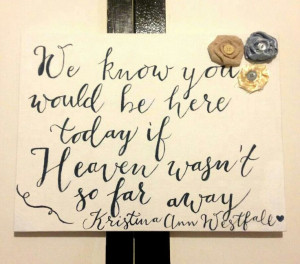 We know you
would be here
today if
Heaven wasn't
so far away
Kristina Ann Westfall